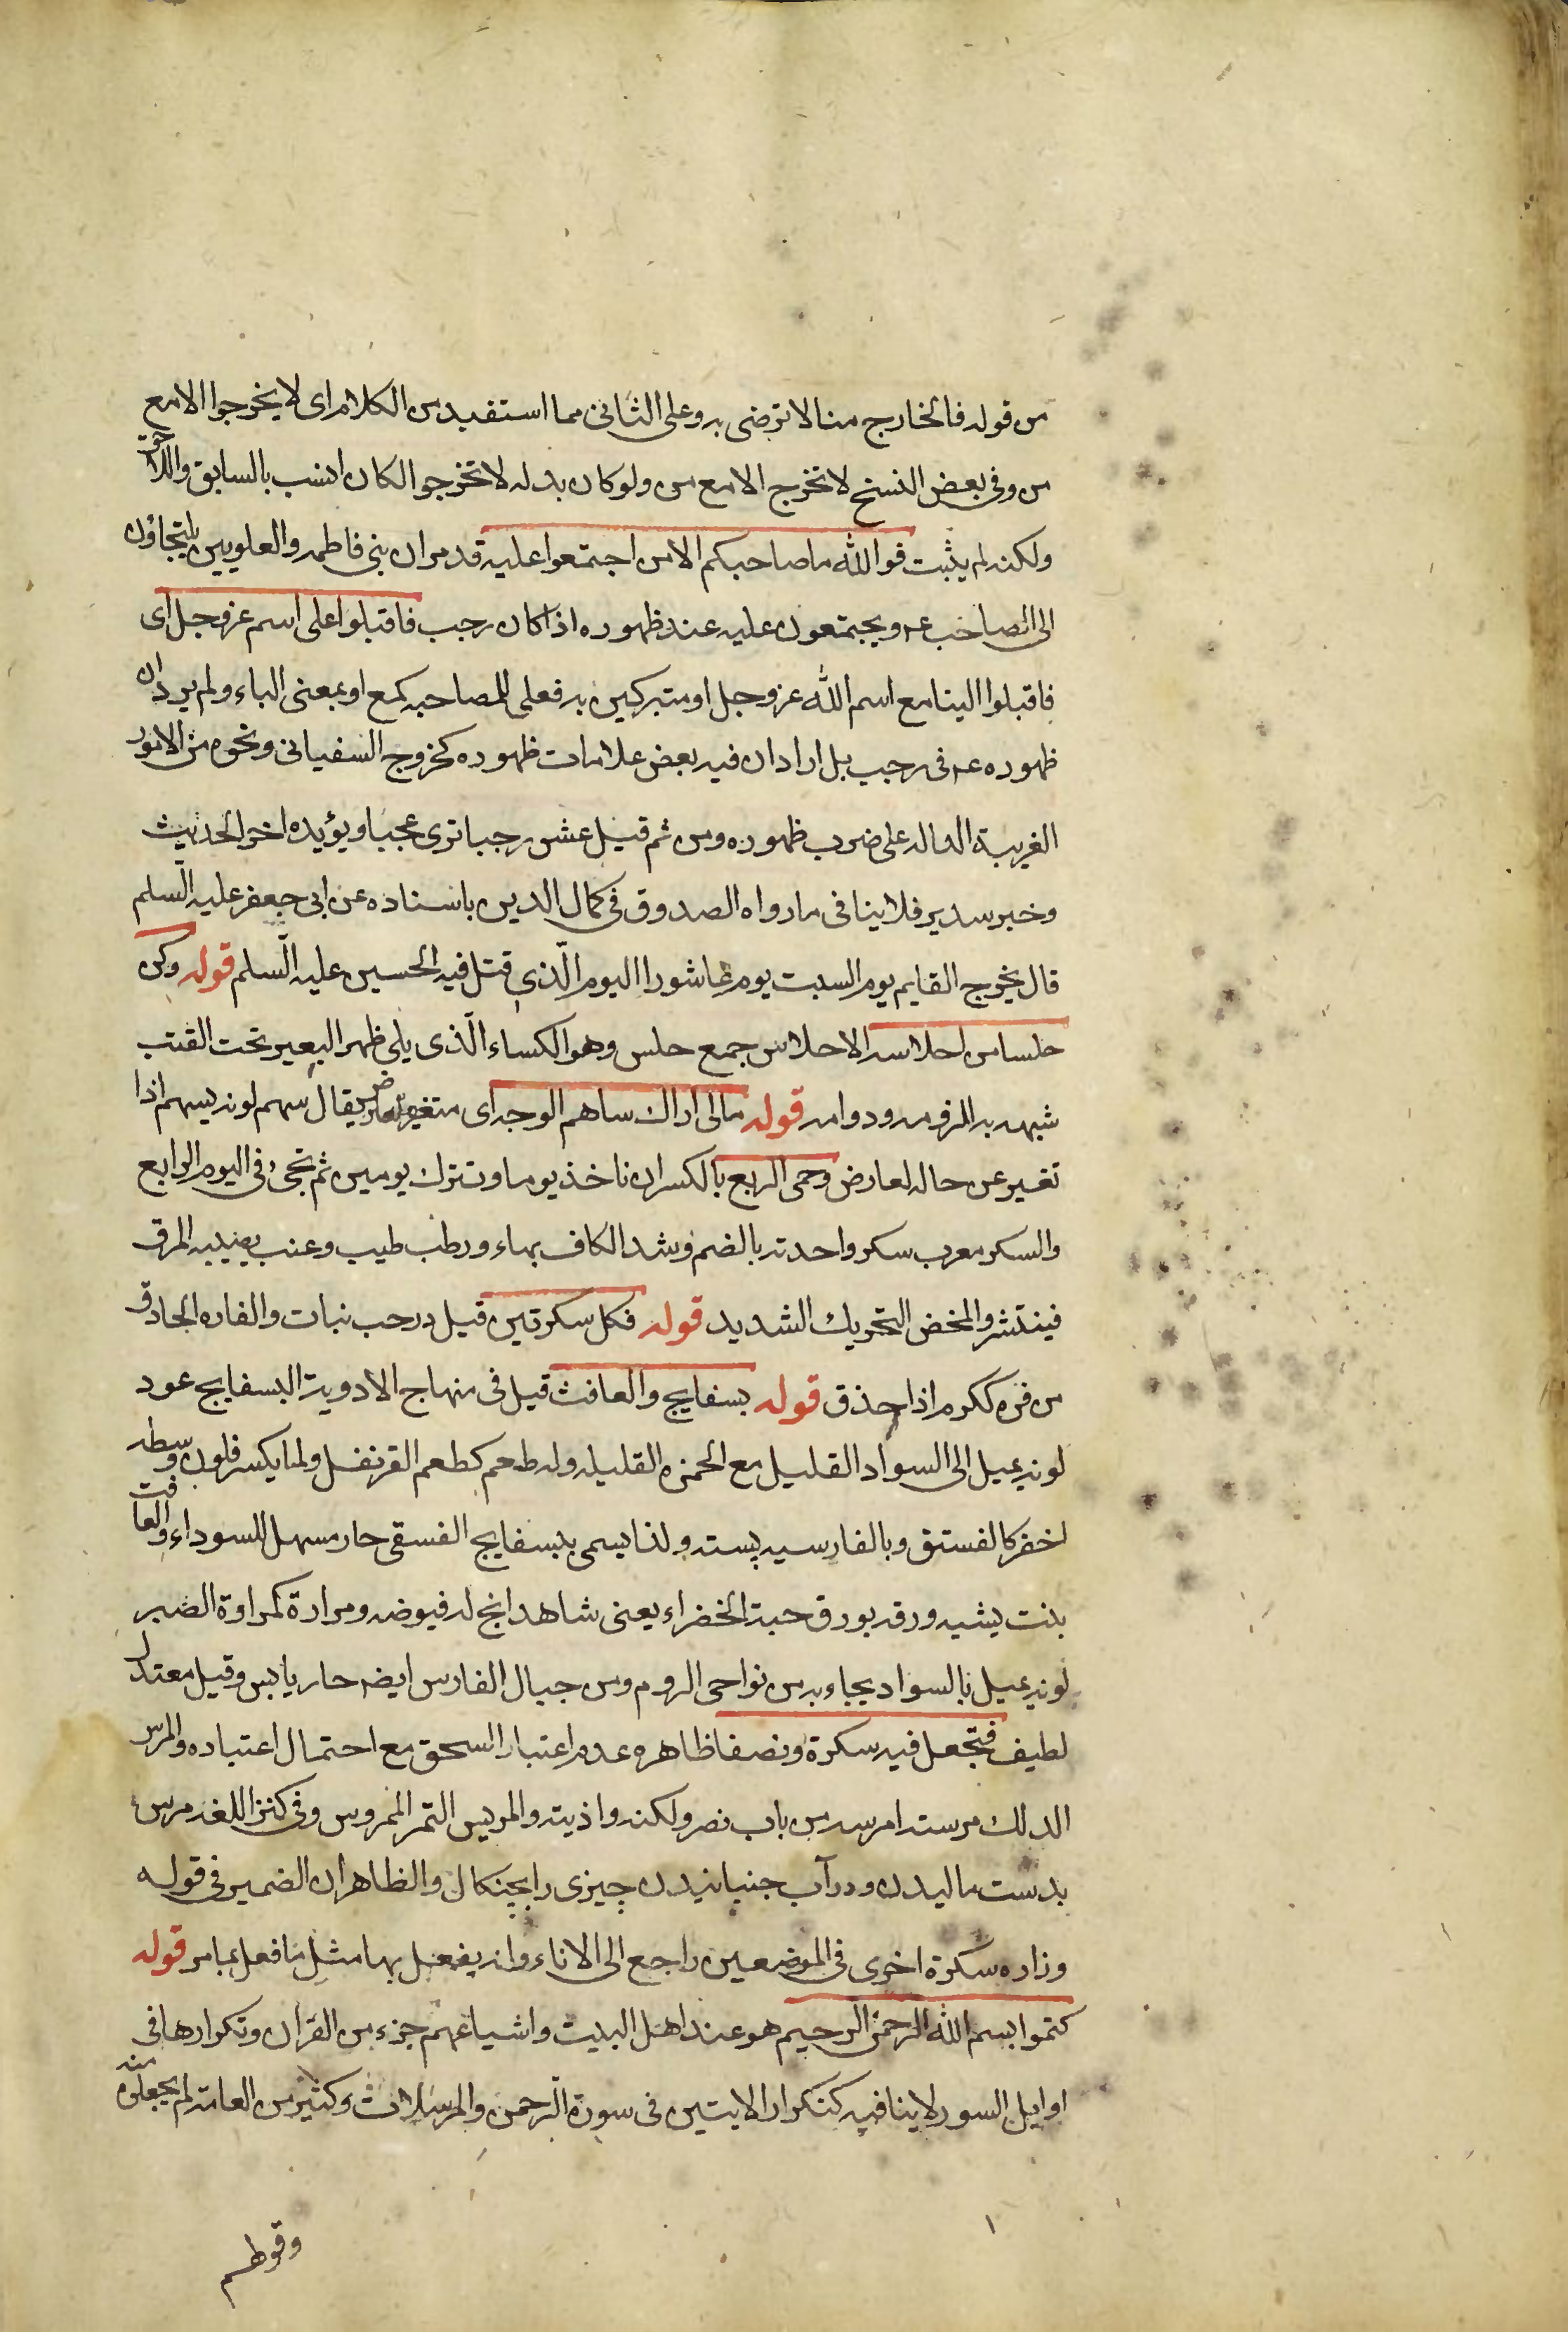 من قوله فالخارج منا لا نرضى به وعلى الثانى مما استفيد من الكلام اى لا يخرجوا الا مع
من وفى بعض النسخ لا تخرج الا مع من ولو كان بدله لا تخرجوا لكان انسب بالسابق واللاحق
ولكنه لم يثبت فوالله ما صاحبكم الا من اجتمعوا عليه قد مر ان بنى فاطمه والعلويين يلتجاؤن
الى الصاحب عـ ويجتمعون عليه عند ظهوره اذا كان رجب فاقبلوا على اسم عز وجل اى
فاقبلوا الينا مع اسم الله عز وجل او متبركين به فعلى للمصاحبه كمع او بمعنى الباء ولم يرد ان
ظهوره عـ فى رجب بل اراد ان فيه بعض علامات ظهوره كخروج السفيانى ونحوه من الامور
الغريبة الداله على ضرب ظهوره ومن ثم قيل عش رجبا ترى عجبا ويؤيده اخر الحديث
وخبر سدير فلا ينافى ما رواه الصدوق فى كمال الدين باسناده عن ابى جعفر عليه السلم
قال يخرج القايم يوم السبت يوم عاشورا اليوم الذى قتل فيه الحسين عليه السلم قوله وكن
حلسا من احلاسه الاحلاس جمع حلس وهو الكساء الذى يلى ظهر البعير تحت القتب
شبهه به للزومه ودوامه قوله مالى اراك ساهم الوجه اى متغيره لعارض يقال سهم لونه يسهم اذا
تغير عن حاله لعارض وحمى الربع بالكسر ان تاخذ يوما وتترك يومين ثم تجئ فى اليوم الرابع
والسكر معرب سكر واحدته بالضم وشد الكاف بهاء ورطب طيب وعنب يصيبه المرق
فينتثر والمخض التحريك الشديد قوله فكل سكرتين قيل در حب نبات والفاره الحاذق
من فره ككرم اذا حذق قوله بسفايج والغافث قيل فى منهاج الادوية البسفايج عود
لونه يميل الى السواد القليل مع الحمره القليله وله طعم كطعم القرنفل ولما يكسر فلون وسطه
اخضر كالفستق وبالفارسيه پسته ولذا يسمى ببسفايج الفسقى حار مسهل للسوداء والغافت
بنت يشبه ورقه بورق حبة الخضراء يعنى شاهدانج له فيوضه ومرارة كمراوة الصبر
لونه يميل بالسواد يجاء به من نواحى الروم ومن جبال الفارس ايضه حار يابس وقيل معتدل
لطيف فتجعل فيه سكرة ونصفا ظاهره عدم اعتبار السحق مع احتمال اعتباره والمرس
الدلك مرسته امرسه من باب نصر ولكنه واذيته والمريس التمر الممروس وفى كنز اللغه مرس
بدست ماليدن ودر آب جنبانيدن چيزى را بچنكال والظاهر ان الضمير فى قوله
وزاره سكرة اخرى فى الموضعين راجع الى الاناء وانه يفعل بها مثل ما فعل بما مر قوله
كتموا بسم الله الرحمن الرحيم هو عند اهل البيت واشياعهم جزء من القران وتكرارها فى
اوايل السور لا ينافيه كتكرار الايتين فى سورة الرحمن والمرسلات وكثير من العامة لم يجعلوه منه
وقولهم